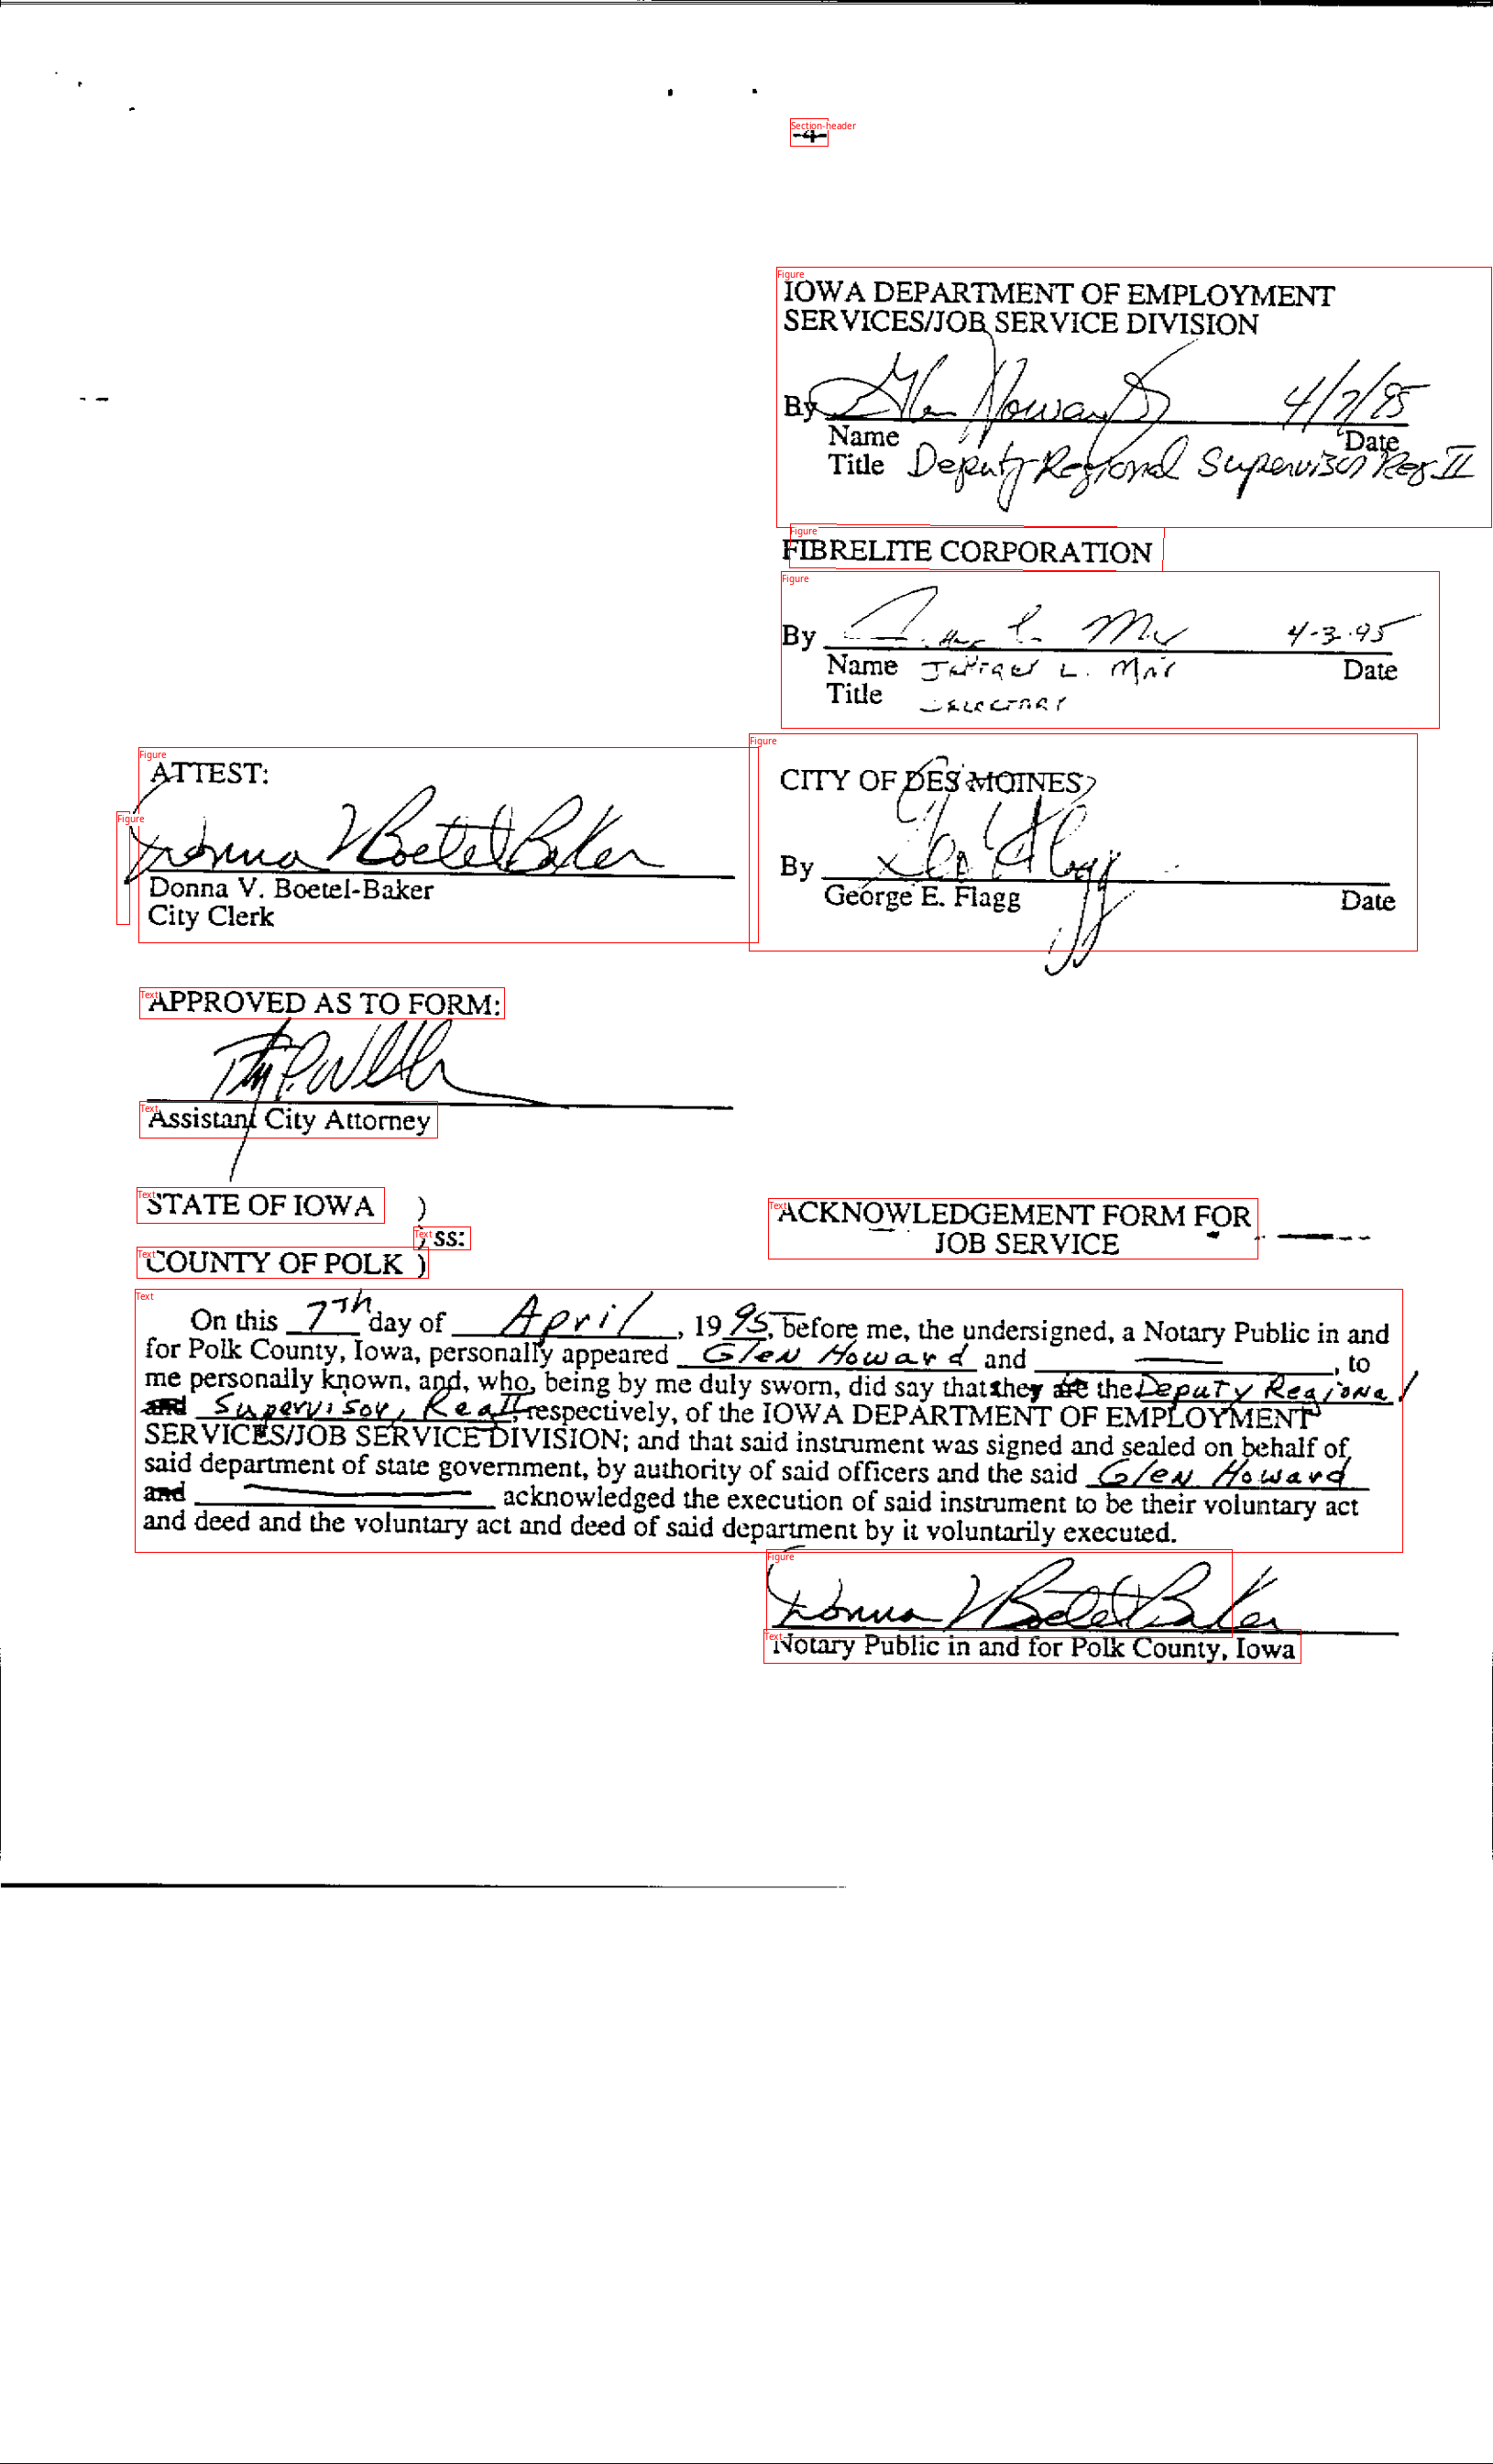 -4-
IOWA DEPARTMENT OF EMPLOYMENT
SERVICES/JOB SERVICE DIVISION
By Glen Howard 4/7/95
Name Date
Title Deputy Regional Supervisor Reg II
FIBRELITE CORPORATION
By 4-3-95
Name L. Date
Title
ATTEST:
Donna V Boetel-Baker
Donna V. Boetel-Baker
City Clerk
CITY OF DES MOINES
By
George E. Flagg Date
APPROVED AS TO FORM:
Assistant City Attorney
STATE OF IOWA )
) ss:
COUNTY OF POLK )
ACKNOWLEDGEMENT FORM FOR
JOB SERVICE
On this 7Th day of April, 1995, before me, the undersigned, a Notary Public in and
for Polk County, Iowa, personally appeared Glen Howard and , to
me personally known, and, who, being by me duly sworn, did say that they are the Deputy Regional
and Supervisor, Reg II, respectively, of the IOWA DEPARTMENT OF EMPLOYMENT
SERVICES/JOB SERVICE DIVISION; and that said instrument was signed and sealed on behalf of
said department of state government, by authority of said officers and the said Glen Howard
and acknowledged the execution of said instrument to be their voluntary act
and deed and the voluntary act and deed of said department by it voluntarily executed.
Donna V Boetel-Baker
Notary Public in and for Polk County, Iowa
Section-header
Figure
Figure
Figure
Figure
Figure
Figure
Text
Text
Text
Text
Text
Text
Text
Figure
Text